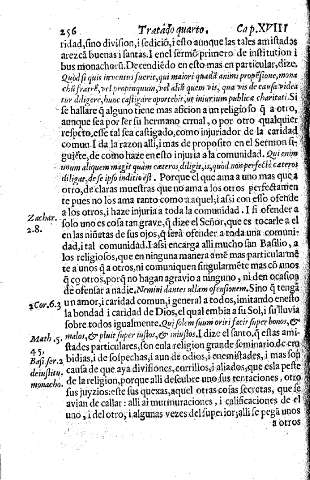 256 Tratado quarto, Cap. XVIII
ridad, sino division, i sedició, i esto aunque las tales amistades
arezcã buenas i santas. I en el sermō primero de institution i
bus monachorũ. Decendiēdo en esto mas en particular, dize.
Quòd si quis inventus fuerit, qui maiori quadã animi propēsione, mona
chū fratrē, vel propinquum, vel aliũ quem vis, qua vis de causa videa
tur diligere, hunc castigare oportebit, ut iniurium publicæ charitati. Si
se hallare q̃ alguno tiene mas aficion a un religioso q̃ a otro,
aunque sea por ser su hermano crrnal, o por otro qualquier
respeto, esse tal sea castigado, como injuriador de la caridad
comun. I da la razon alli, i mas de proposito en el Sermon se
guiēte, de como haze en esto injuria a la comunidad. Qui enim
unum aliquem magis quàm cateros diligit, is, quòd non perfectè cateros
diligat, de se ipso inditio est. Porque el que ama a uno mas que a
otro, de claras muestras que no ama a los otros perfectamen
te pues no los ama ranto como a aquel; i assi con esso ofende
a los otros, i haze injuria a toda la comunidad. I si ofender a
Zachar.
2. 8.
solo uno es cosa tan grave, q̃ dize el Señor, que es tocarle a el
en las niñetas de sus ojos, q̃ serà ofender a toda una comuni-
dad, i tal comunidad. I assi encarga alli mucho san Basilio, a
los religiosos, que en ninguna manera amē mas particularmē
te a unos q̃ a otros, ni comuniquen singularmēte mas cō unos
q̃ cō otros, por no hazan agravio a ninguno, ni den ocasion
de ofensar a nadie. Nemini dantes ullam offensionem. Sino q̃ tengã
2 Cor. 6. 3
un amor, i caridad comun, i general a todos, imitando en esto
la bondad i caridad de Dios, el qual embia a su Sol, i su lluvia
sobre todos igualmente. Qui solem suum oriri facit super bonos, &
Math. 5.
45.
malos, & pluit super iustos, & iniustos. I dize el santo, q̃ estas ami-
stades particulares, son en la religion grande seminario de em
Basi. ser. 2
de institu.
monacho.
bidias, i de sospechas, i aun de odios, i enemistades, i mas son
causa de que aya divisiones, corrillos, i aliados, que es la peste
de la religion, porque alli descubre uno sus tentaciones, otro
sus juyzios: este sus quexas, aquel otras cosas secretas, que se
avian de callar: alli ai murmuraciones, i calificaciones de el
uno, i del otro, i algunas vezes del superior; alli se pegã unos
a otros